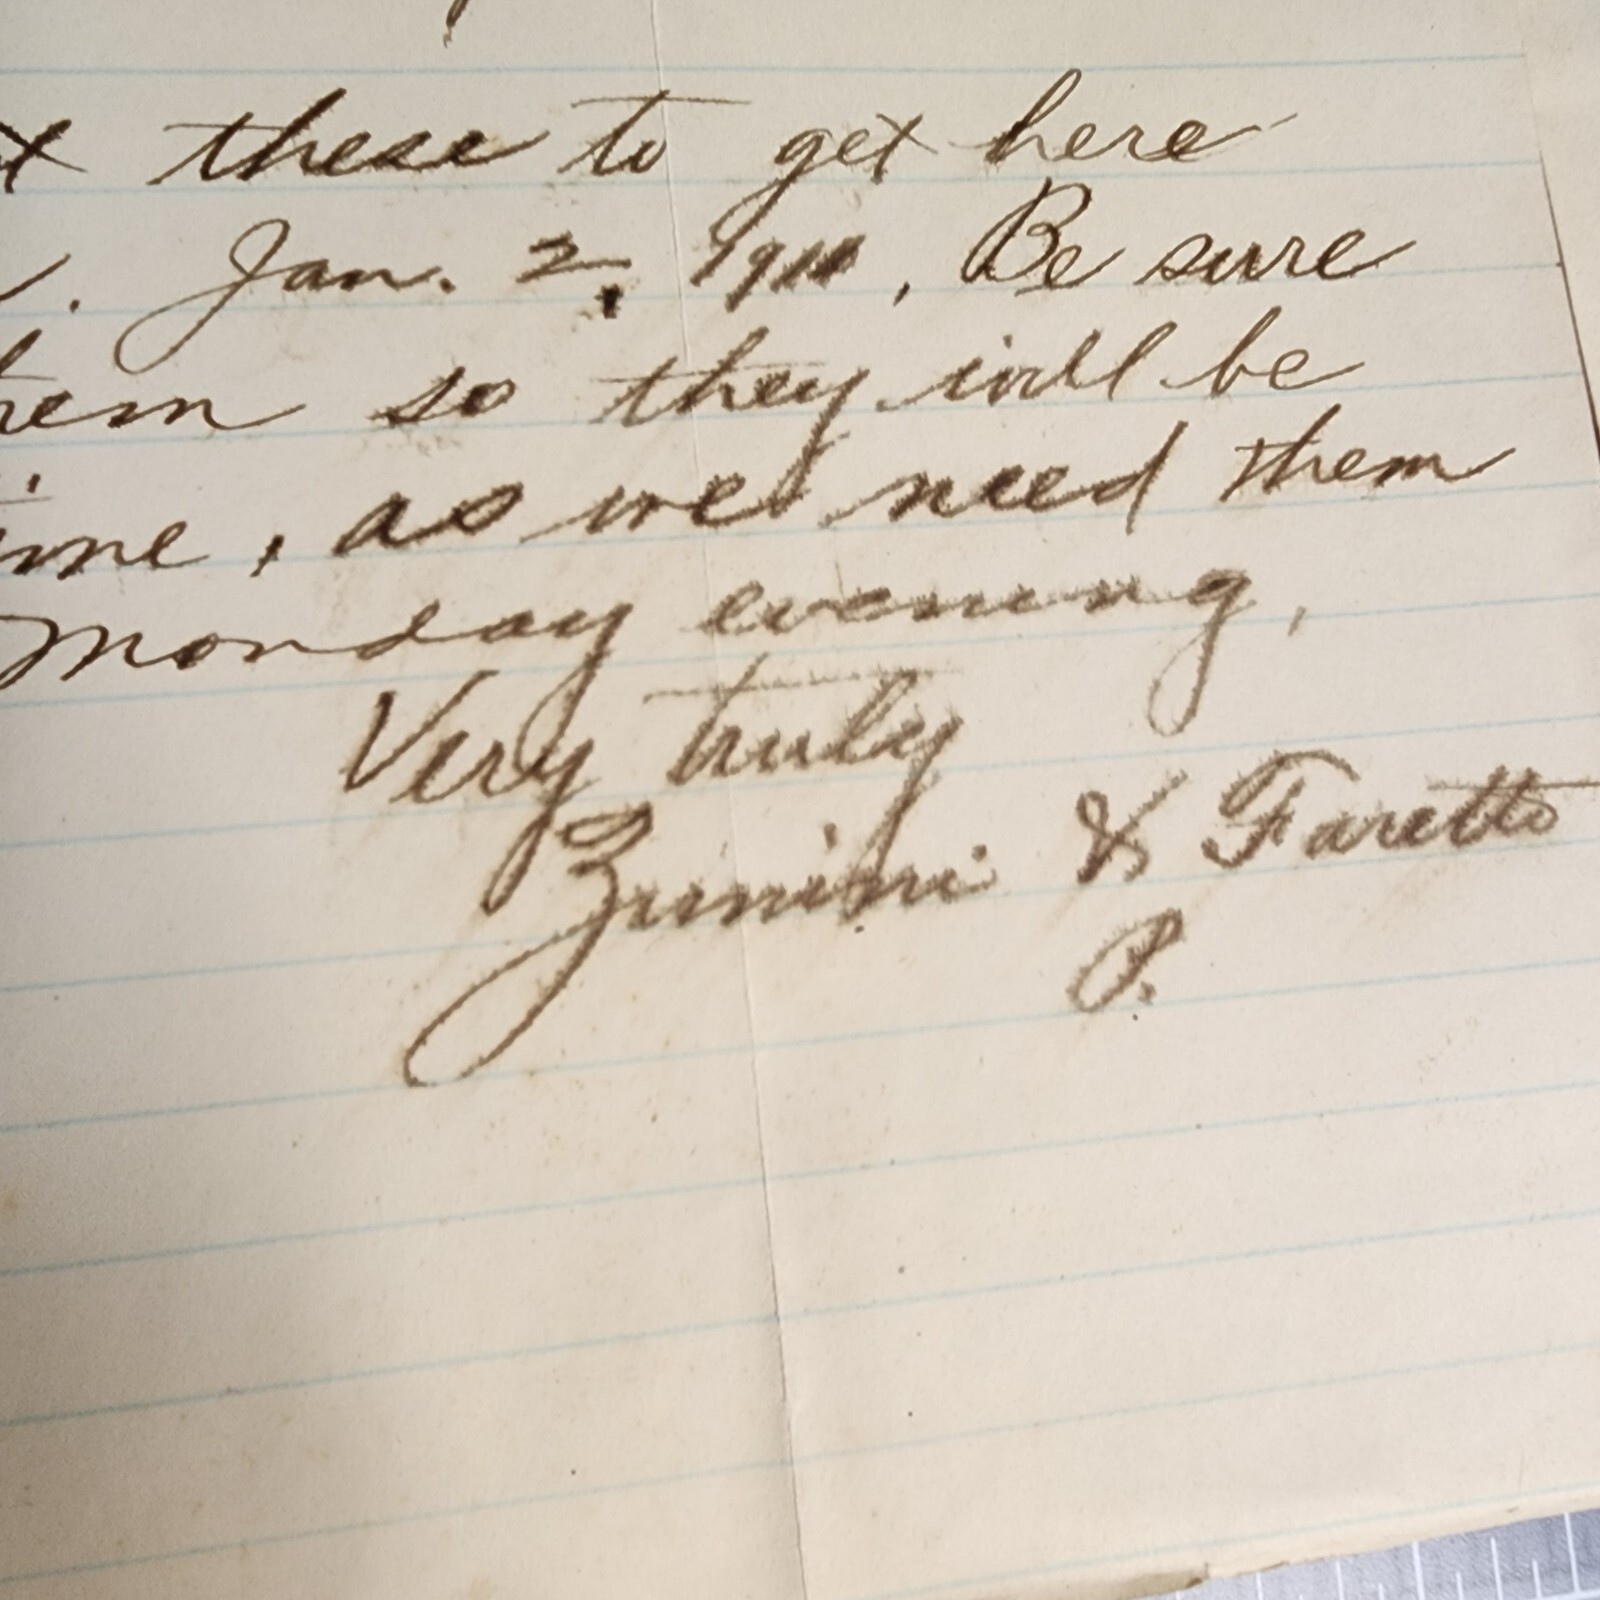 these to get here
Jan. 2, 1911, Be sure
so they will be
, as we need them
Monday evening,
Very truly
Zunini & Faretto
P.